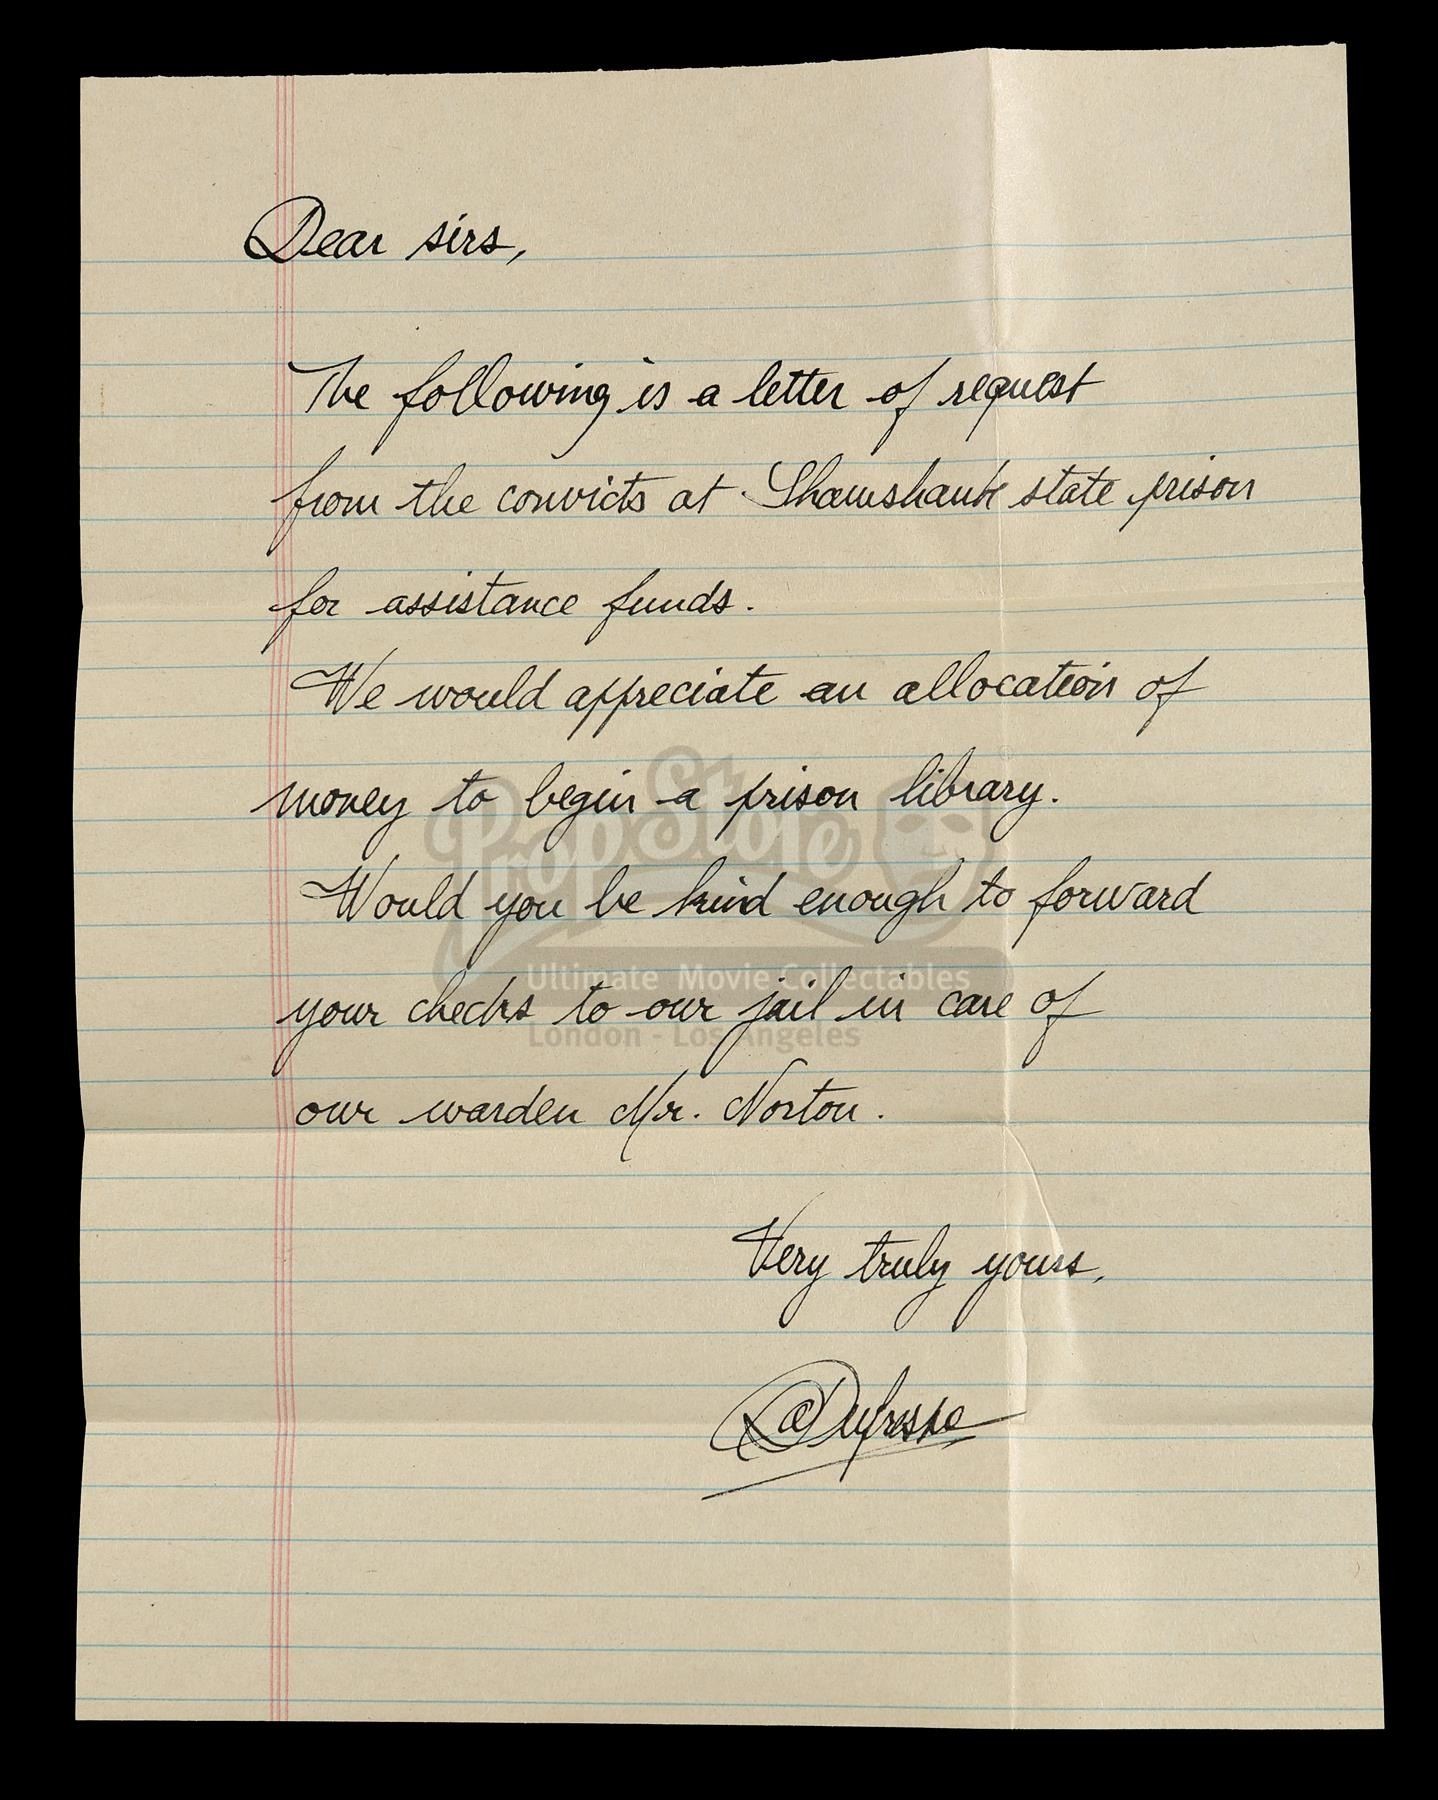 Dear sirs,
The following is a letter of request
from the convicts at Shawshank state prison
for assistance funds.
We would appreciate an allocation of
money to begin a prison library.
PropStore
Would you be kind enough to forward
Ultimate Movie Collectables
your checks to our jail in care of
London - Los Angeles
our warden Mr. Norton.
Very truly yours,
Dufresne